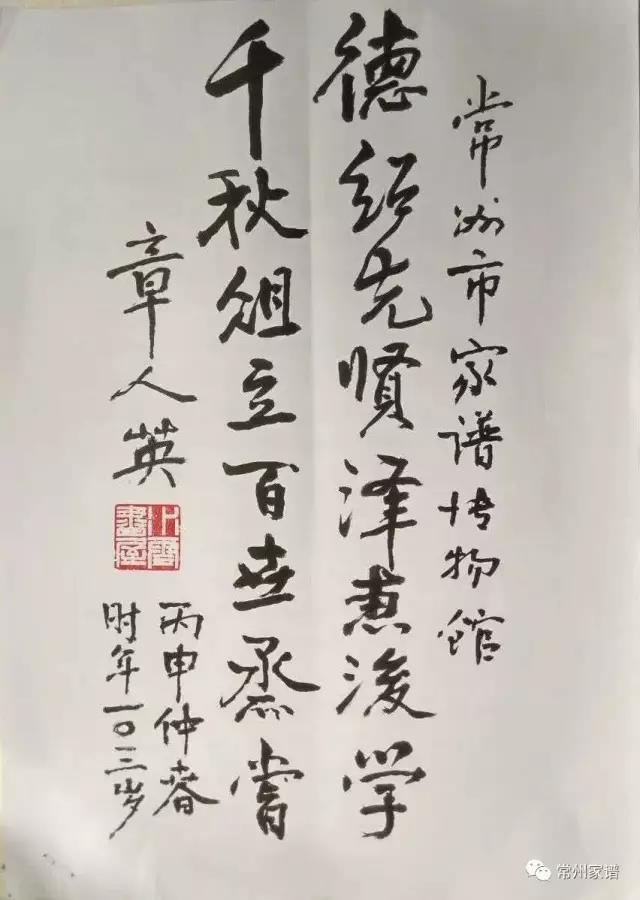 常州市家谱博物馆
德绍先贤泽惠後学
千秋俎立百世烝嘗
章人英
丙申仲春
时年一〇三岁
常州家谱